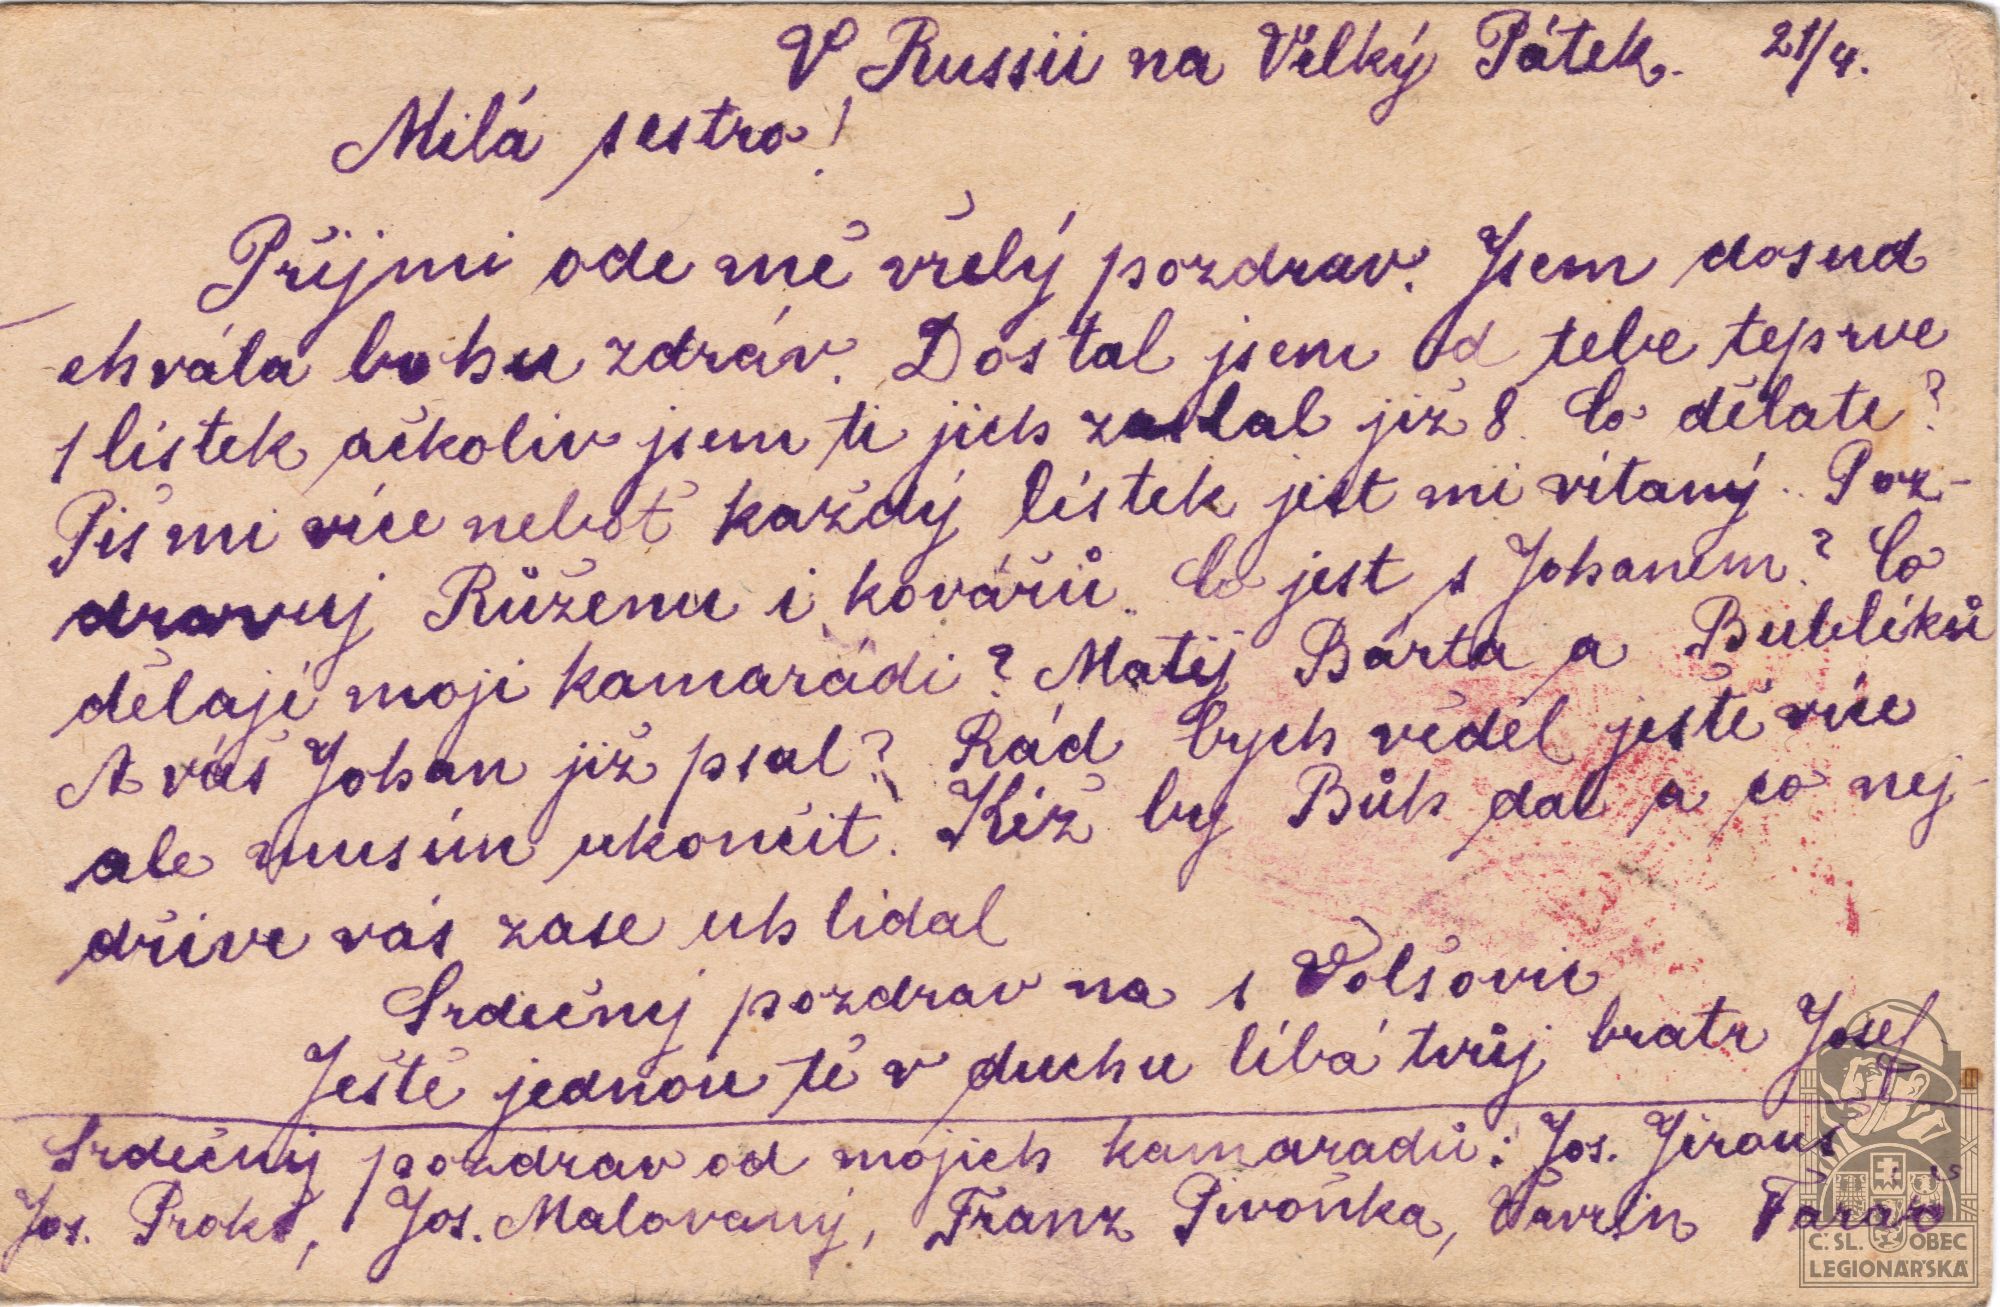 V Russii na Velký Pátek. 21/4.
Milá sestro!
Přijmi ode mě vřelý pozdrav. Jsem dosud
chvála bohu zdráv. Dostal jsem od tebe teprve
1 lístek ačkoliv jsem ti jich zaslal již 8. Co dělate?
Piš mi více neboť každý lístek jest mi vítaný. Poz-
dravuj Růženu i kovářů. Co jest s Johanem? Co
dělají moji kamarádi? Matěj Bárta a Bublíků
A váš Johan již psal? Rád bych věděl ještě více
ale musím ukončit. Kéž by Bůh dal a co nej-
dříve vás zase uhlidal
Srdečný pozdrav na s Volšovic
Ještě jednou tě v duchu líbá tvůj bratr Josef
Srdečný pozdrav od mojich kamaradů: Jos. Jirous
Jos. Prokš, Jos. Malovaný, Franz Pivoňka, Vavřin
Č. SL. OBEC
LEGIONÁŘSKÁ